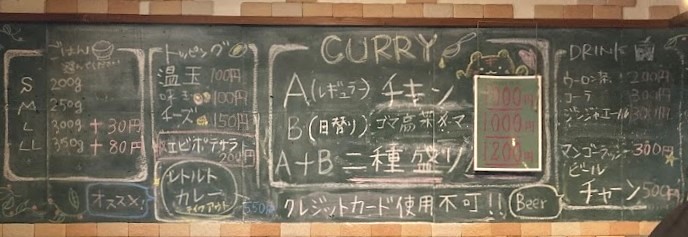 ごはん
選んでください
S 200g
M 250g
L 300g +30円
LL 350g +80円
オススメ!
トッピング
温玉 100円
味玉 100円
チーズ 150円
エビポテサラ
200円
レトルト
カレー
テイクアウト
550円
CURRY
A(レギュラー) チキン
B(日替り) ゴマ高菜キーマ
1000円
A+B 二種盛り
1200円
クレジットカード使用不可!!
DRINK
ウーロン茶 200円
コーラ
ジンジャエール
マンゴーラッシー 300円
Beer
ビール
チャーン 500円